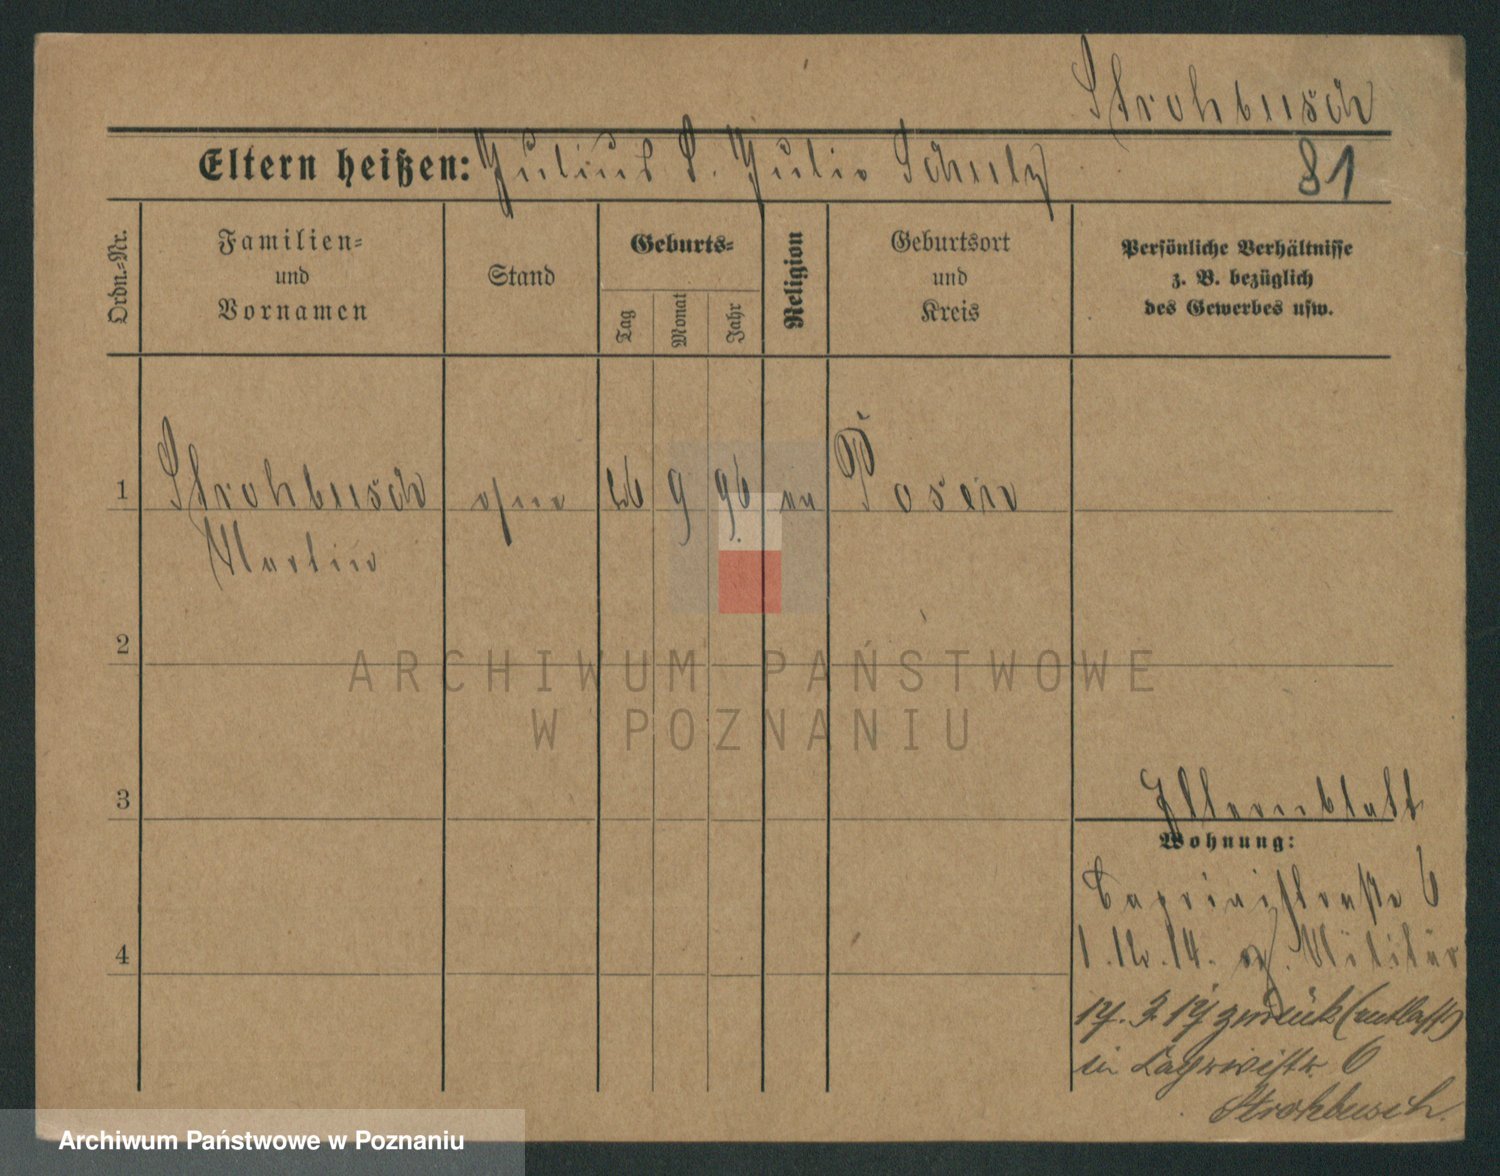 Strohbusch
Eltern heißen: Julius S. Julie Schulz
81
Ordn.-Nr.
Familien-
und
Vornamen
Stand
Geburts-
Tag
Monat
Jahr
Religion
Geburtsort
und
Kreis
Persönliche Verhältnisse
z. B. bezüglich
des Gewerbes usw.
1 Strohbusch ohne 26 9 96 ev Posen
Martin
2
3
4
Elternblatt
Wohnung:
Caprivistraße 6
1.12.14. Militär
17. 3. 17 zurück (entlass)
in Caprivistr. 6
Strohbusch.
ARCHIWUM PAŃSTWOWE
W POZNANIU
Archiwum Państwowe w Poznaniu